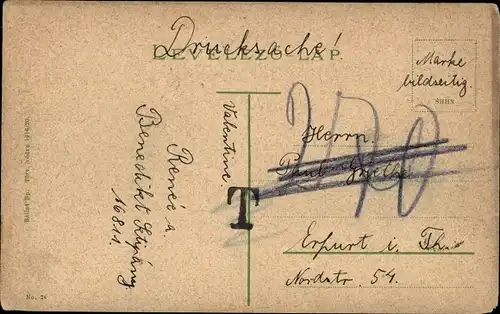 Drucksache!
LEVELEZŐ-LAP.
Marke
bildseitig.
Valentine.
Renée a.
Benedikt
16811.
T
Herrn.
Erfurt i. Th.
Nordstr. 54.
No. 24